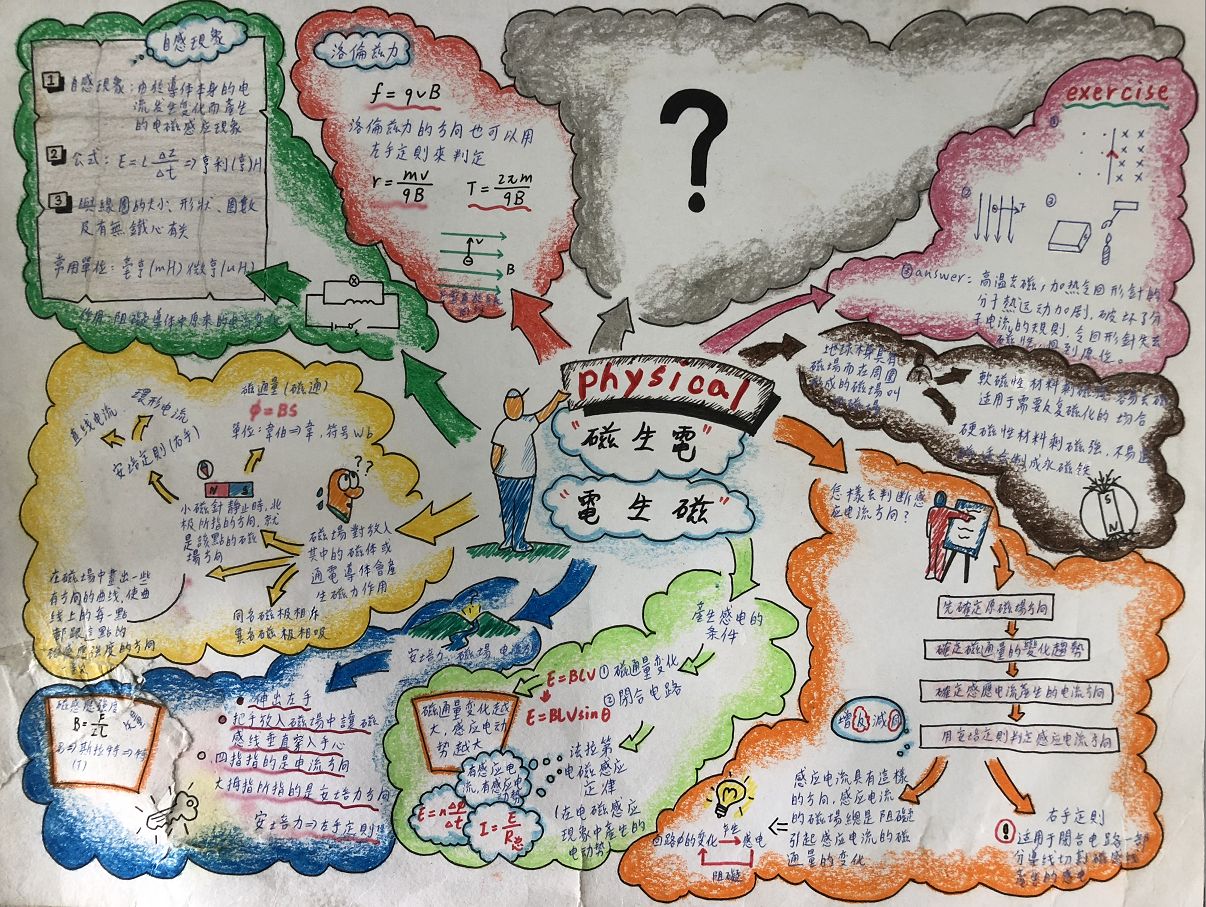 自感現象
1 自感現象：由於導体本身的电
流发生變化而產生
的电磁感应現象
2 公式：E=L ΔI/Δt ⇒亨利(亨)H
3 與線圈的大小、形狀、圈數
及有無鐵心有关
常用單位：毫亨(mH) 微亨(uH)
作用：阻碍導体中原來的电流变化
洛倫兹力
f=qvB
洛倫兹力的方向也可以用
左手定則來判定
r=mv/qB T=2πm/qB
V
B
?
exercise
①
②
③
③answer：高温去磁，加热令回形針的
分子热运动加剧，破坏了分
子电流的規則，令回形針失去
磁性，回到原位。
physical
"磁生電"
"電生磁"
地球本身具有
磁場而在周圍
形成的磁場叫
軟磁性材料剩磁弱，容易去磁
适用于需要反复磁化的场合
硬磁性材料剩磁強，不易退
磁，适合制成永磁铁
S
N
磁通量(磁通)
φ=BS
單位：韋伯⇒韋，符号Wb
環形电流
直线电流
安培定則(右手)
N S
小磁針靜止時，北
极所指的方向，就
是該點的磁
場方向
??
磁場對放入
其中的磁体或
通電導体會產
生磁力作用
在磁場中畫出一些
有方向的曲线，使曲
线上的每一點
都跟這點的
磁感應強度的方向
一致
同名磁极相斥
異名磁极相吸
?
安培力 磁場 电流
磁感應強度
B=F/IL
⇒斯拉特⇒特
(T)
伸出左手
把手放入磁場中讓磁
感线垂直穿入手心
四指指的是电流方向
大拇指所指的是安培力方向
安培力⇒左手定則
產生感电的
条件
①磁通量变化
②閉合电路
E=BLV
E=BLVsinθ
磁通量变化越
大，感应电动
势越大
有感应电
流，有感应电动势
E=nΔφ/Δt
I=E/R总
法拉第
电磁感应
定律
(在电磁感应
現象中產生的
电动势
怎樣去判断感
应电流方向？
先確定原磁場方向
確定磁通量的變化趨勢
確定感應电流產生的电流方向
用安培定則判定感应电流方向
增反減同
感应电流具有這樣
的方向，感应电流
的磁場總是阻碍
引起感应电流的磁
通量的变化
回路中的变化 產生 感电
阻碍
右手定則
适用于閉合电路一部
分導线切割磁感线
產生的感电